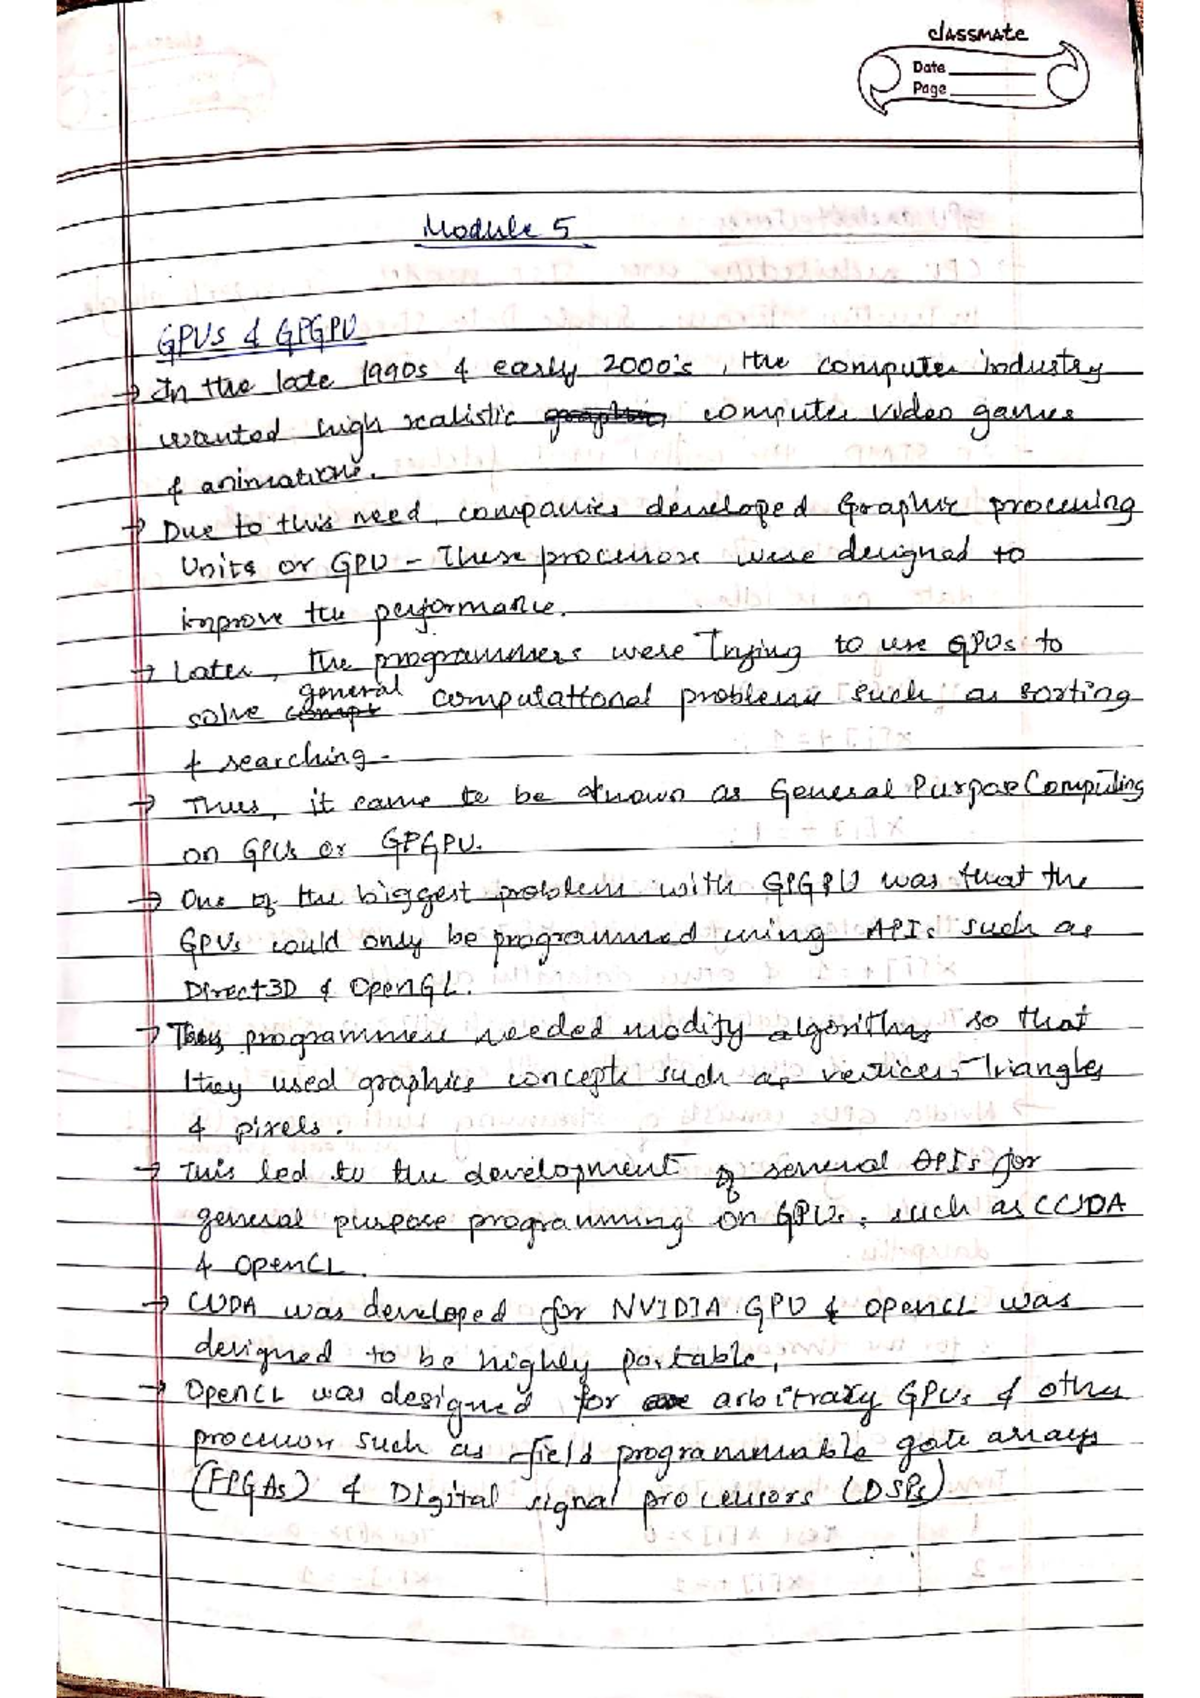 classmate
Date
Page
Module 5
GPUs & GPGPU
→ In the late 1990s & early 2000's, the computer industry
wanted high realistic computer video games
& animations.
→ Due to this need, companies developed Graphic processing
Units or GPU - These processors were designed to
improve the performance.
→ Later, the programmers were Trying to use GPUs to
solve general computational problems such as sorting
& searching.
→ Thus, it came to be known as General Purpose Computing
on GPUs or GPGPU.
→ One of the biggest problem with GPGPU was that the
GPUs could only be programmed using APIs such as
Direct3D & OpenGL.
→ Thus, programmers needed modify algorithms so that
they used graphics concepts such as vertices, Triangles
& pixels.
→ This led to the development of several APIs for
general purpose programming on GPUs, such as CCUDA
& OpenCL.
→ CUDA was developed for NVIDIA GPU & OpenCL was
designed to be highly portable,
→ OpenCL was designed for arbitrary GPUs & other
processor such as field programmable gate arrays
(FPGAs) & Digital signal processors (DSPs)